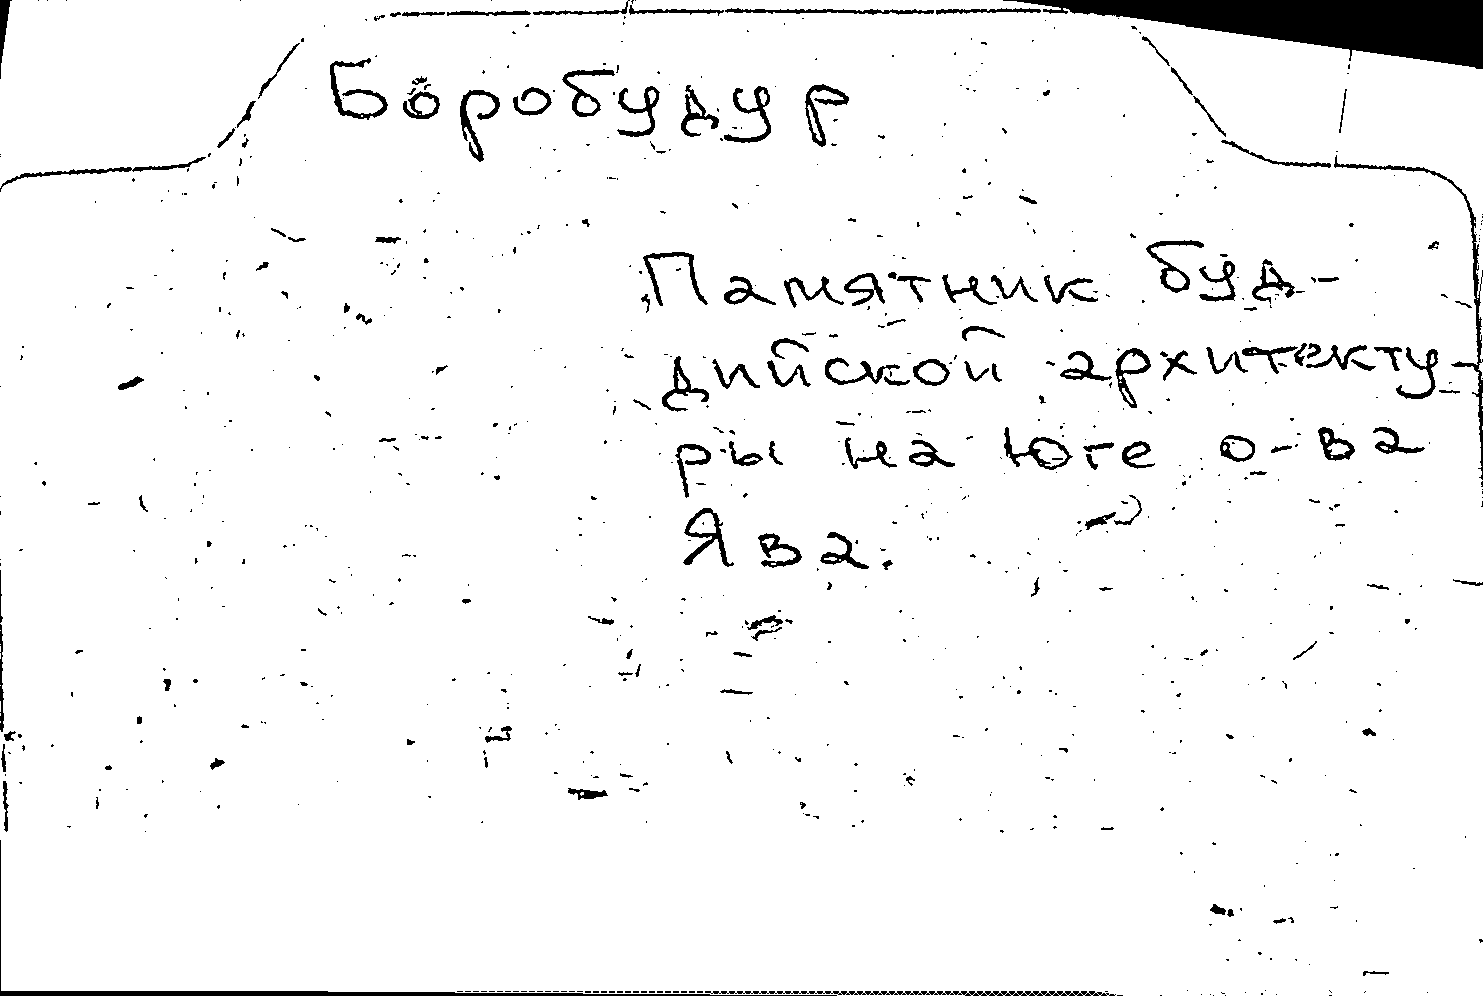 Боробудур
Памятник буд-
дийской архитекту-
ры на юге о-ва
Ява.